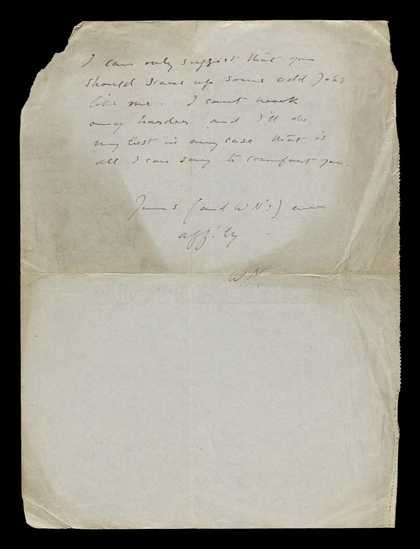 I can only suggest that you
should scrape up some odd jobs
like me. I can't work
any harder and I'll do
my best in any case that is
all I can say to comfort you.
Yours (and W N's) ever
aff:ly
W.N.